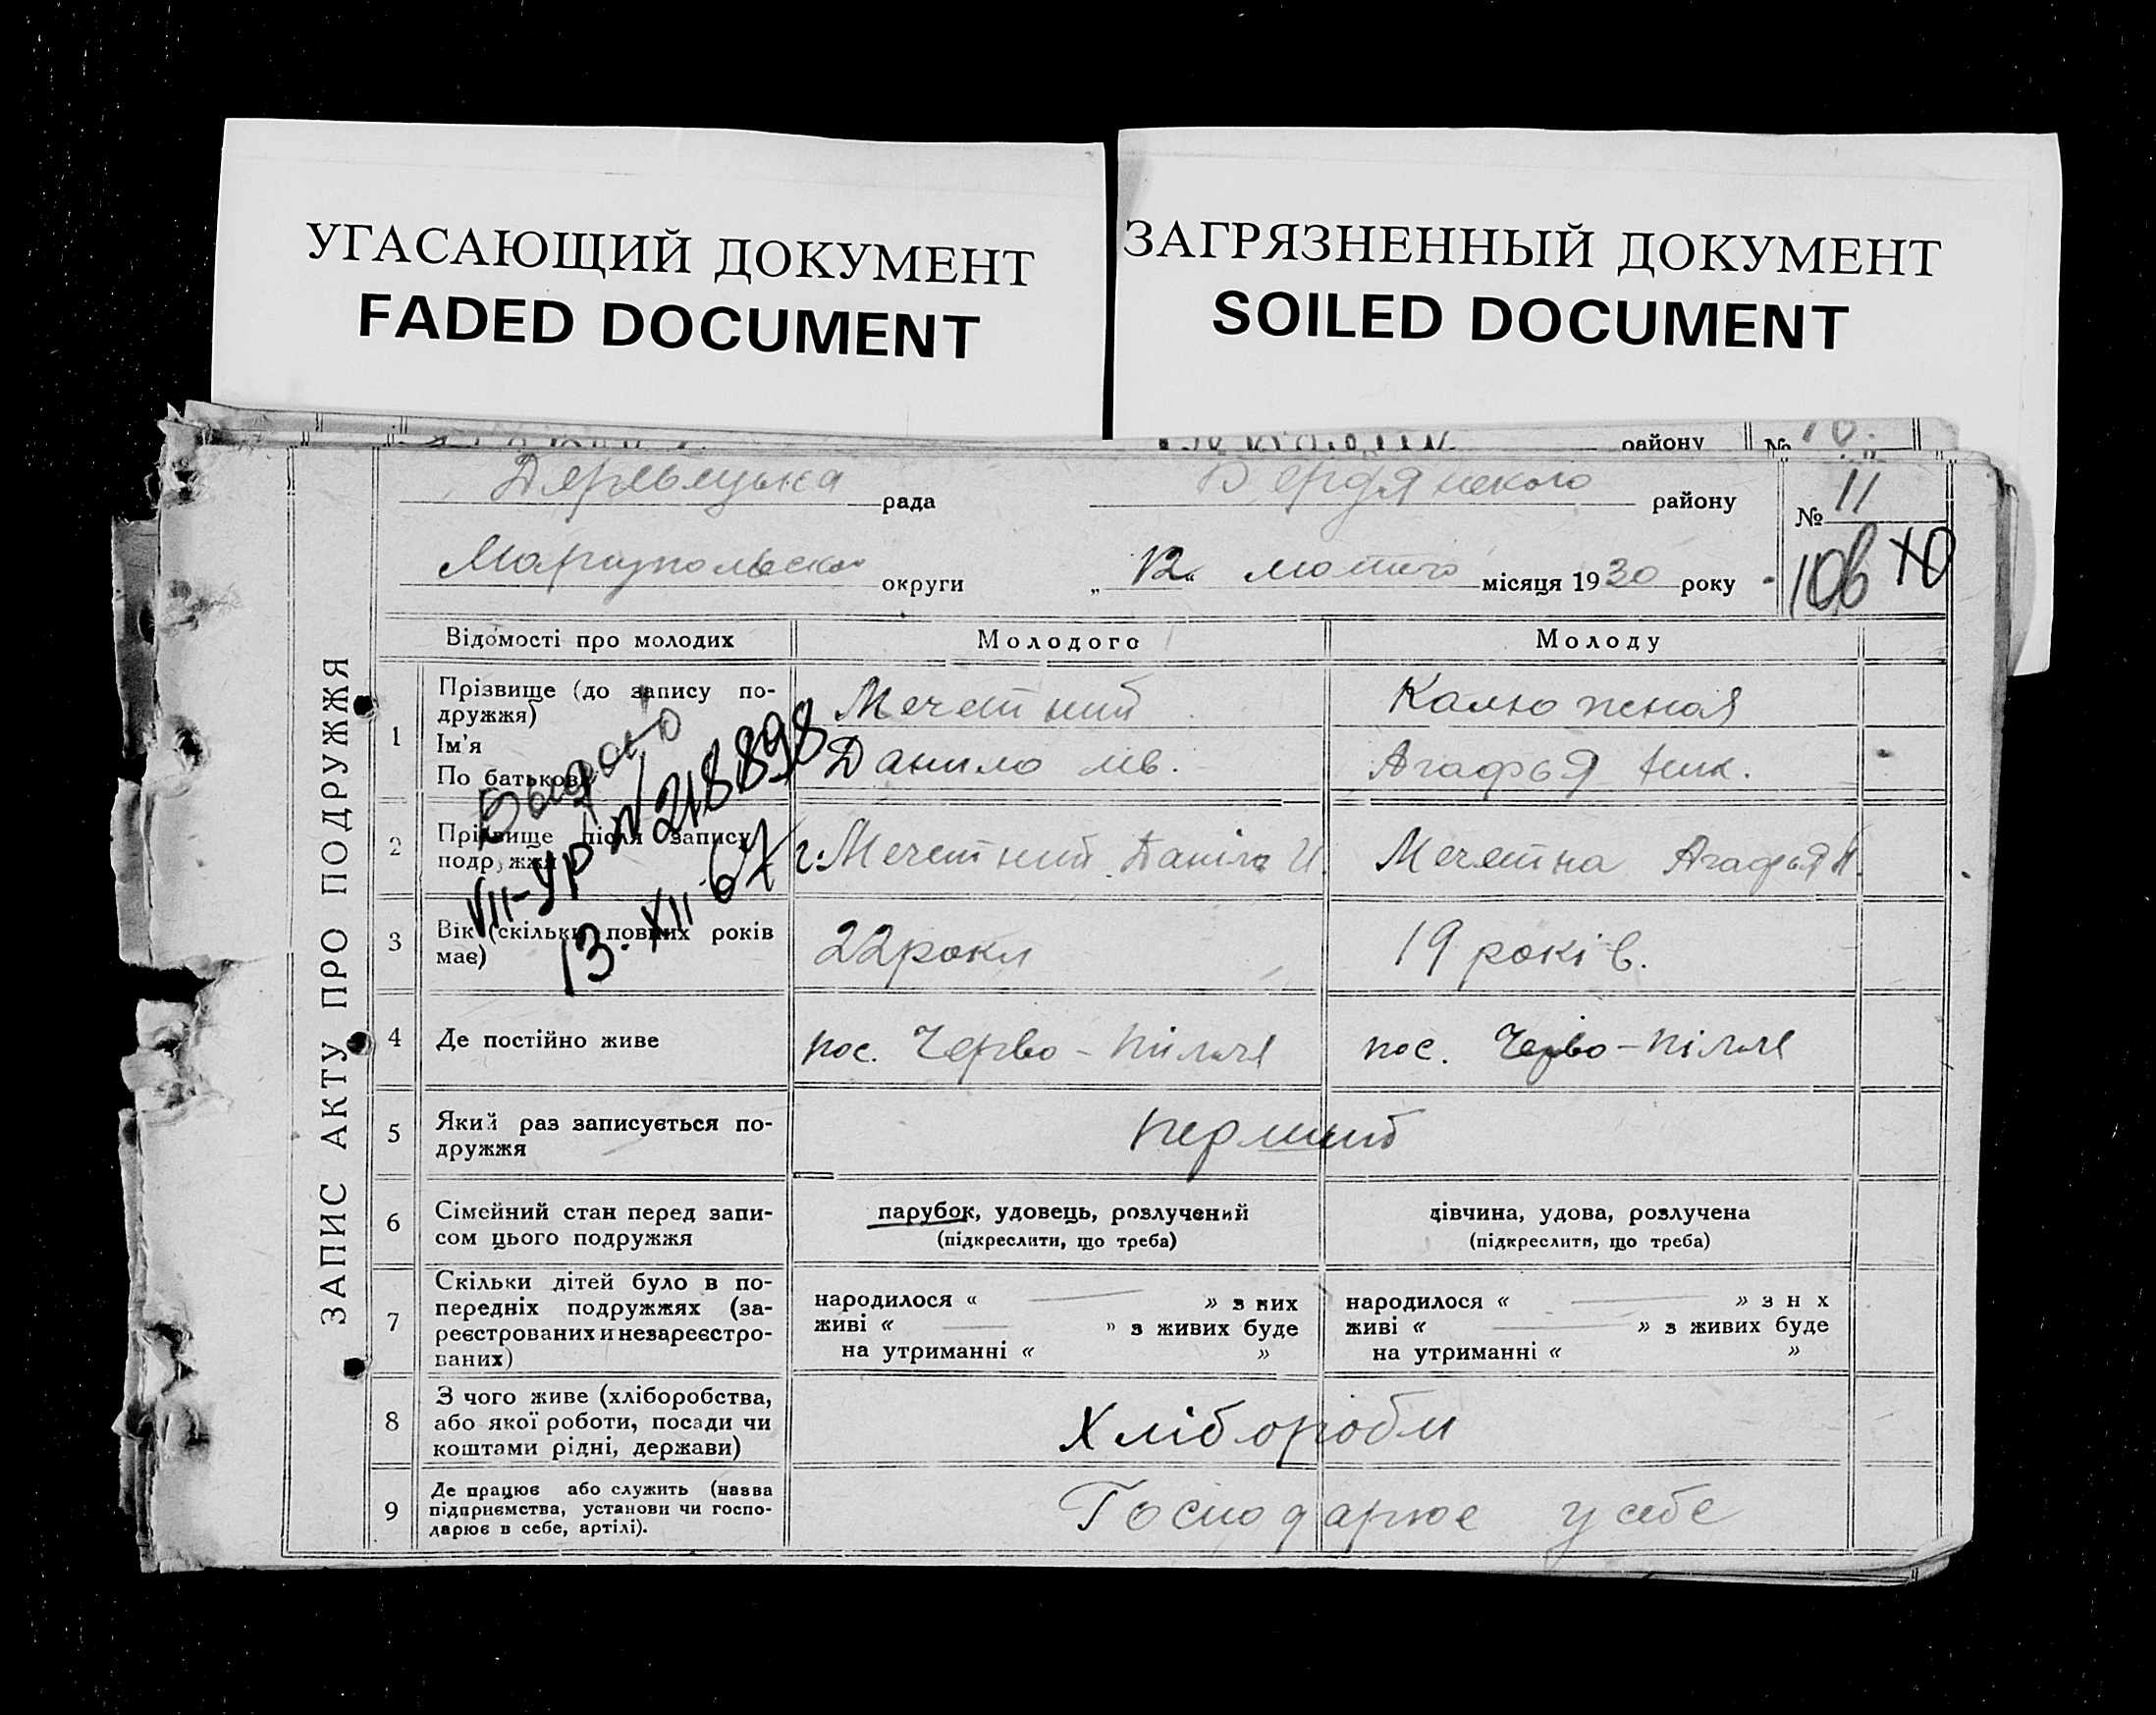 УГАСАЮЩИЙ ДОКУМЕНТ
FADED DOCUMENT
ЗАГРЯЗНЕННЫЙ ДОКУМЕНТ
SOILED DOCUMENT
району № 10.
рада Бердянского району № 11
Мариупольска округи „12“ лютого місяця 1930 року
106 Ю
ЗАПИС АКТУ ПРО ПОДРУЖЖЯ
Відомості про молодих Молодого Молоду
1 Прізвище (до запису по-
дружжя) Мечетний Калюжная
Ім'я
По батькові Данило Ив. Агафья Ник.
2 Прізвище після запису
подружжя Мечетний Даніла И. Мечетна Агафья Н.
Видано
VII-УР № 218898
13.XII 67 г.
3 Вік (скільки повних років
має) 22 роки 19 років.
4 Де постійно живе пос. Черво-Пілля пос. Черво-Пілля
5 Який раз записується по-
дружжя перший
6 Сімейний стан перед запи-
сом цього подружжя
парубок, удовець, розлучений
(підкреслити, що треба)
дівчина, удова, розлучена
(підкреслити, що треба)
7 Скільки дітей було в по-
передніх подружжях (за-
реєстрованих и незареєстро-
ваних)
народилося « — » з них
живі « — » з живих буде
на утриманні « »
народилося « — » з н х
живі « — » з живих буде
на утриманні « »
8 З чого живе (хліборобства,
або якої роботи, посади чи
коштами рідні, держави) Хлібороби
9 Де працює або служить (назва
підприємства, установи чи госпо-
дарює в себе, артілі). Господарює у себе